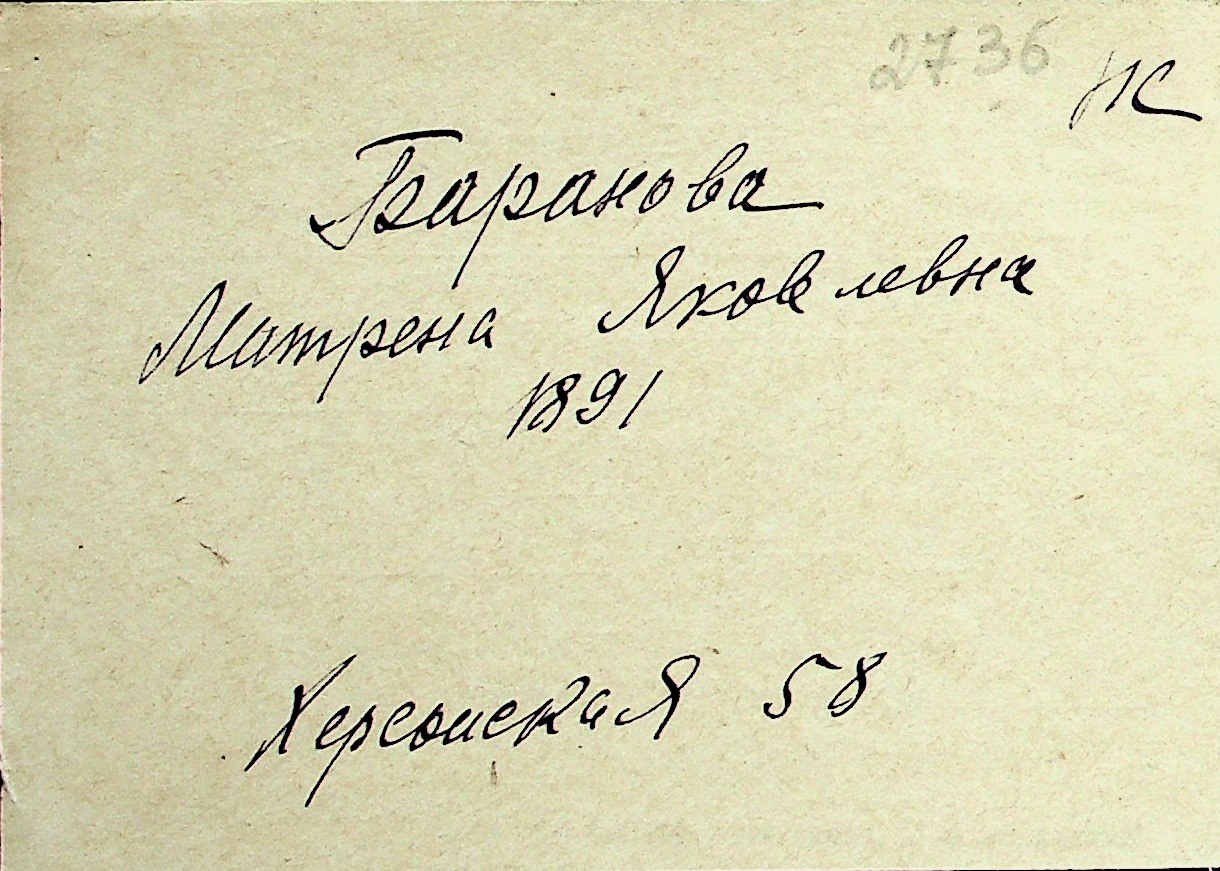 2736
НС
Баранова
Матрена Яковлевна
1891
Херсонская 58